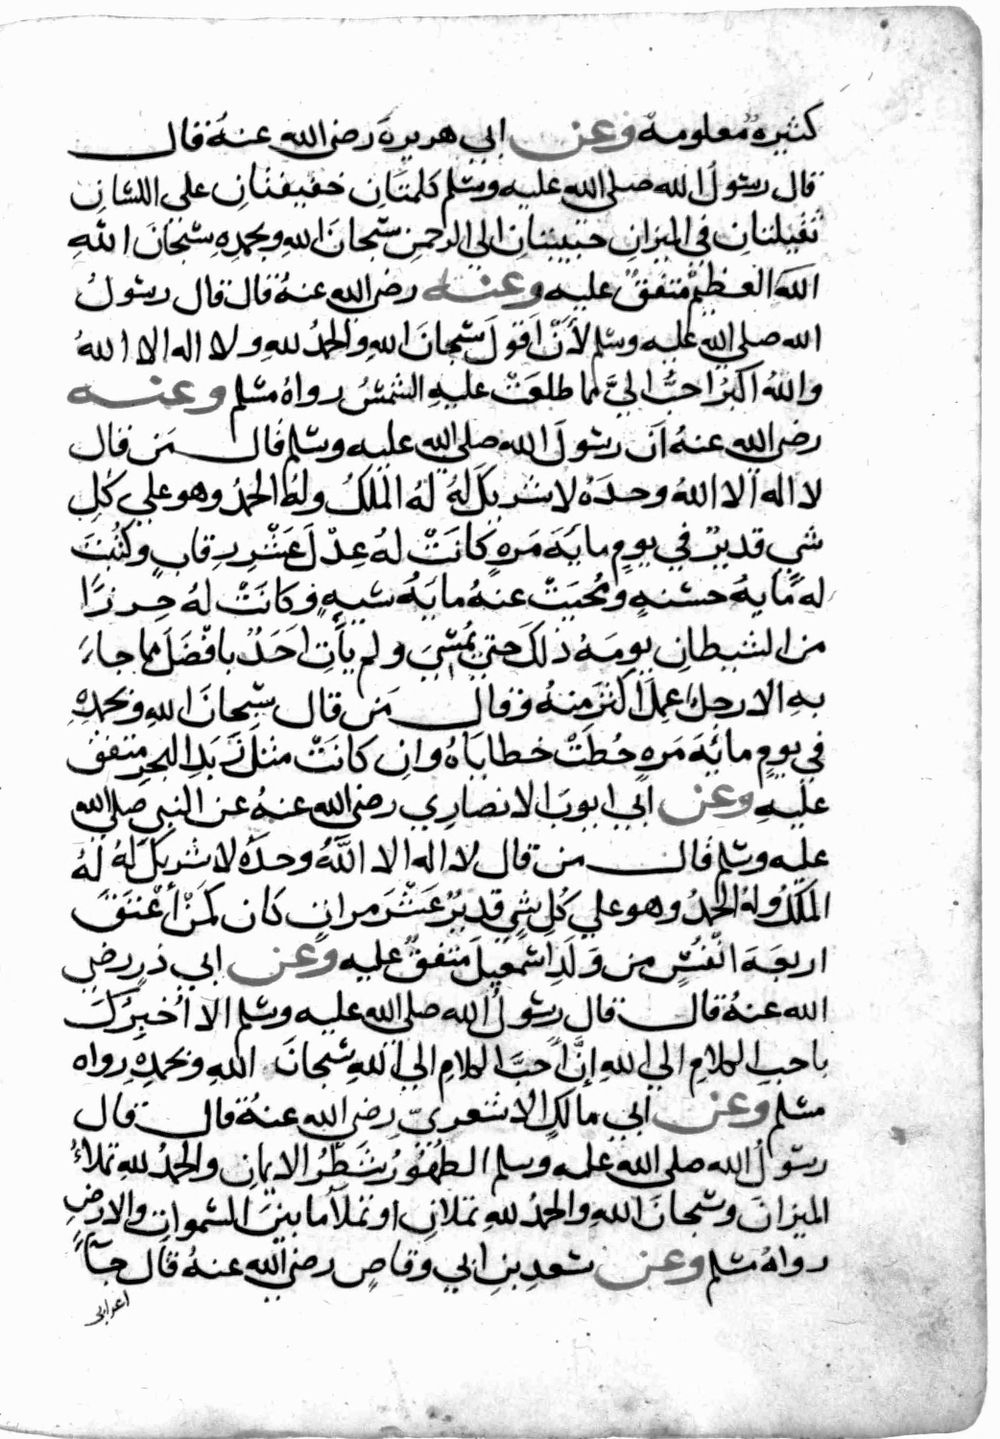 كثيرة معلومة وعن ابي هريرة رضي الله عنه قال
قال رسول الله صلى الله عليه وسلم كلمتان خفيفتان على اللسان
ثقيلتان في الميزان حبيبتان الى الرحمن سبحان الله وبحمده سبحان الله
الله العظيم متفق عليه وعنه رضي الله عنه قال قال رسول
الله صلى الله عليه وسلم لأن اقول سبحان الله والحمد لله ولا اله الا الله
والله اكبر احب الي مما طلعت عليه الشمس رواه مسلم وعنه
رضي الله عنه ان رسول الله صلى الله عليه وسلم قال من قال
لا اله الا الله وحده لا شريك له له الملك وله الحمد وهو على كل
شي قدير في يوم ماية مرة كانت له عدل عشر رقاب وكتبت
له ماية حسنة ومحيت عنه ماية سيية وكانت له حرزا
من الشيطان يومه ذلك حتى يمسي ولم يأت احد بافضل مما جاء
به الا رجل عمل اكثر منه وقال من قال سبحان الله وبحمده
في يوم ماية مرة حطت خطاياه وان كانت مثل زبد البحر متفق
عليه وعن ابي ايوب الانصاري رضي الله عنه عن النبي صلى الله
عليه وسلم قال من قال لا اله الا الله وحده لا شريك له له
الملك وله الحمد وهو على كل شي قدير عشر مرات كان كمن أعتق
اربعة انفس من ولد اسمعيل متفق عليه وعن ابي ذر رضي
الله عنه قال قال رسول الله صلى الله عليه وسلم الا اخبرك
باحب الكلام الى الله إن احب الكلام الى الله سبحان الله وبحمده رواه
مسلم وعن ابي مالك الاشعري رضي الله عنه قال قال
رسول الله صلى الله عليه وسلم الطهور شطر الايمان والحمد لله تملاء
الميزان وسبحان الله والحمد لله تملان او تملأ ما بين السموات والارض
رواه مسلم وعن سعد بن ابي وقاص رضي الله عنه قال جاء
اعرابي